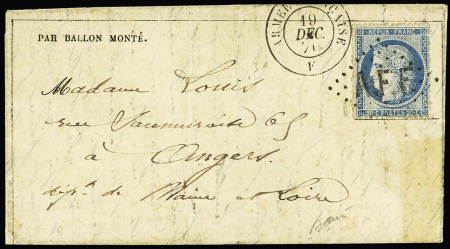 PAR BALLON MONTÉ.
ARMEE FRANÇAISE
19
DEC.
F
REPUB. FRANC.
20 C. POSTES 20 C.
AFF
Madame Louis
rue Saumuroise 65
à
Angers.
dép.t de Maine et Loire